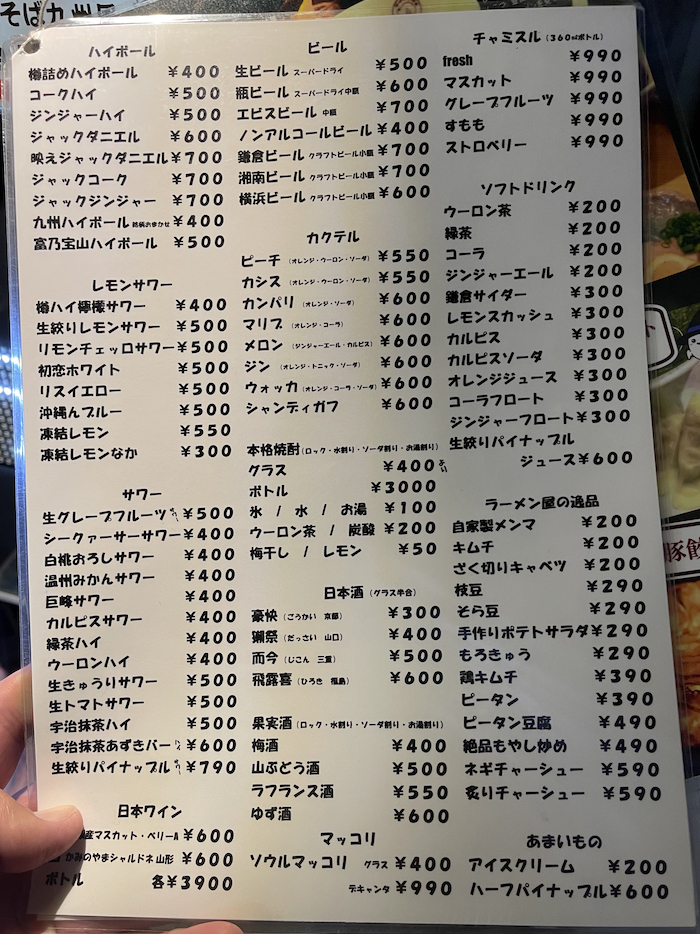 そば九州
ハイボール
樽詰めハイボール ¥400
コークハイ ¥500
ジンジャーハイ ¥500
ジャックダニエル ¥600
映えジャックダニエル ¥700
ジャックコーク ¥700
ジャックジンジャー ¥700
九州ハイボール 銘柄おまかせ ¥400
富乃宝山ハイボール ¥500
レモンサワー
樽ハイ檸檬サワー ¥400
生絞りレモンサワー ¥500
リモンチェッロサワー ¥500
初恋ホワイト ¥500
リスイエロー ¥500
沖縄んブルー ¥500
凍結レモン ¥550
凍結レモンなか ¥300
サワー
生グレープフルーツ ¥500
シークァーサーサワー ¥400
白桃おろしサワー ¥400
温州みかんサワー ¥400
巨峰サワー ¥400
カルピスサワー ¥400
緑茶ハイ ¥400
ウーロンハイ ¥400
生きゅうりサワー ¥500
生トマトサワー ¥500
宇治抹茶ハイ ¥500
宇治抹茶あずきバー ¥600
生絞りパイナップル ¥790
日本ワイン
産マスカット・ベリーA ¥600
かみのやまシャルドネ 山形 ¥600
ボトル 各¥3900
ビール
生ビール スーパードライ ¥500
瓶ビール スーパードライ中瓶 ¥600
エビスビール 中瓶 ¥700
ノンアルコールビール ¥400
鎌倉ビール クラフトビール小瓶 ¥700
湘南ビール クラフトビール小瓶 ¥700
横浜ビール クラフトビール小瓶 ¥600
カクテル
ピーチ (オレンジ・ウーロン・ソーダ) ¥550
カシス (オレンジ・ウーロン・ソーダ) ¥550
カンパリ (オレンジ・ソーダ) ¥600
マリブ (オレンジ・コーラ) ¥600
メロン (ジンジャーエール・カルピス) ¥600
ジン (オレンジ・トニック・ソーダ) ¥600
ウォッカ (オレンジ・コーラ・ソーダ) ¥600
シャンディガフ ¥600
本格焼酎 (ロック・水割り・ソーダ割り・お湯割り)
グラス ¥400より
ボトル ¥3000
氷 / 水 / お湯 ¥100
ウーロン茶 / 炭酸 ¥200
梅干し / レモン ¥50
日本酒 (グラス半合)
豪快 (ごうかい 京都) ¥300
獺祭 (だっさい 山口) ¥400
而今 (じこん 三重) ¥500
飛露喜 (ひろき 福島) ¥600
果実酒 (ロック・水割り・ソーダ割り・お湯割り)
梅酒 ¥400
山ぶどう酒 ¥500
ラフランス酒 ¥550
ゆず酒 ¥600
マッコリ
ソウルマッコリ グラス ¥400
デキャンタ ¥990
チャミスル (360mlボトル)
fresh ¥990
マスカット ¥990
グレープフルーツ ¥990
すもも ¥990
ストロベリー ¥990
ソフトドリンク
ウーロン茶 ¥200
緑茶 ¥200
コーラ ¥200
ジンジャーエール ¥200
鎌倉サイダー ¥300
レモンスカッシュ ¥300
カルピス ¥300
カルピスソーダ ¥300
オレンジジュース ¥300
コーラフロート ¥300
ジンジャーフロート ¥300
生絞りパイナップル
ジュース ¥600
ラーメン屋の逸品
自家製メンマ ¥200
キムチ ¥200
ざく切りキャベツ ¥200
枝豆 ¥290
そら豆 ¥290
手作りポテトサラダ ¥290
もろきゅう ¥290
鶏キムチ ¥390
ピータン ¥390
ピータン豆腐 ¥490
絶品もやし炒め ¥490
ネギチャーシュー ¥590
炙りチャーシュー ¥590
あまいもの
アイスクリーム ¥200
ハーフパイナップル ¥600